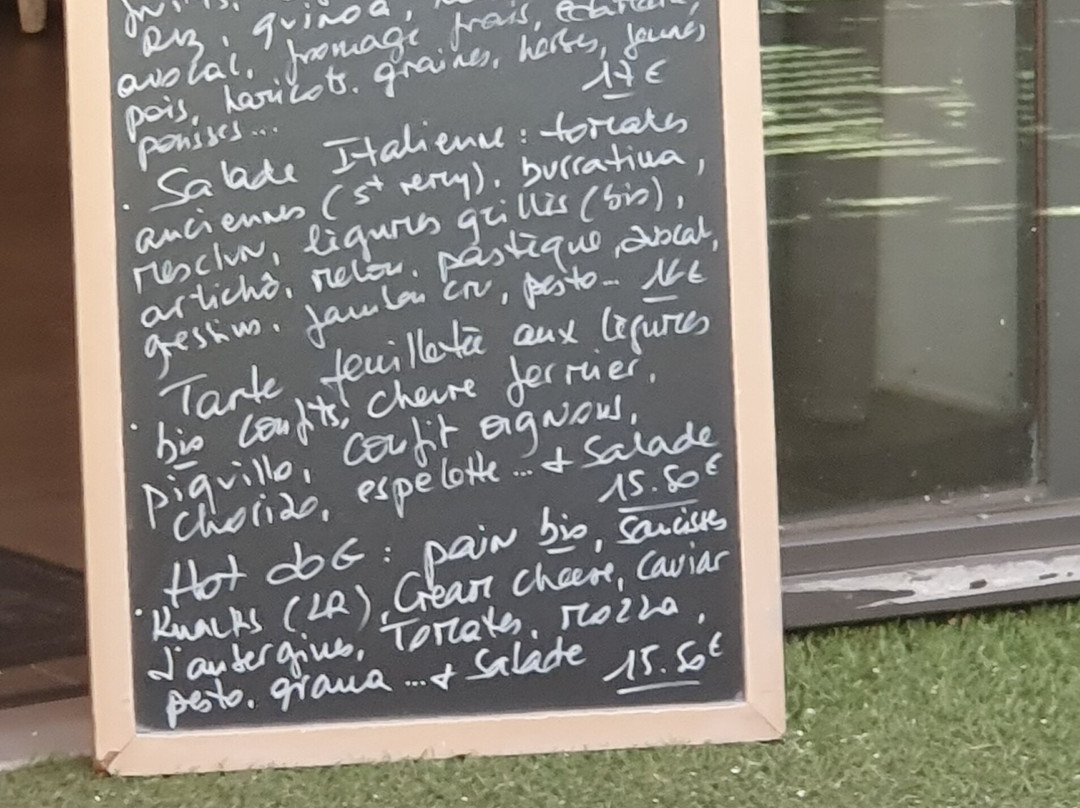 Riz, quinoa,
avocat, fromage frais, edamame,
pois, haricots, graines, herbes, jeunes
pousses... 17€
. Salade Italienne : tomates
anciennes (st remy), burratina,
mesclun, légumes grillés (bio),
artichò, melon, pastèque, avocat,
gressins, jambon cru, pesto... 16€
. Tarte feuilletée aux légumes
bio confits, chèvre fermier,
piquillo, confit oignons,
chorizo, espelette ... + Salade
15.50€
. Hot doG : pain bio, saucisses
Knacks (LR), Cream cheese, caviar
d'aubergines, Tomates, mozza,
pesto, grana ... + Salade 15.50€